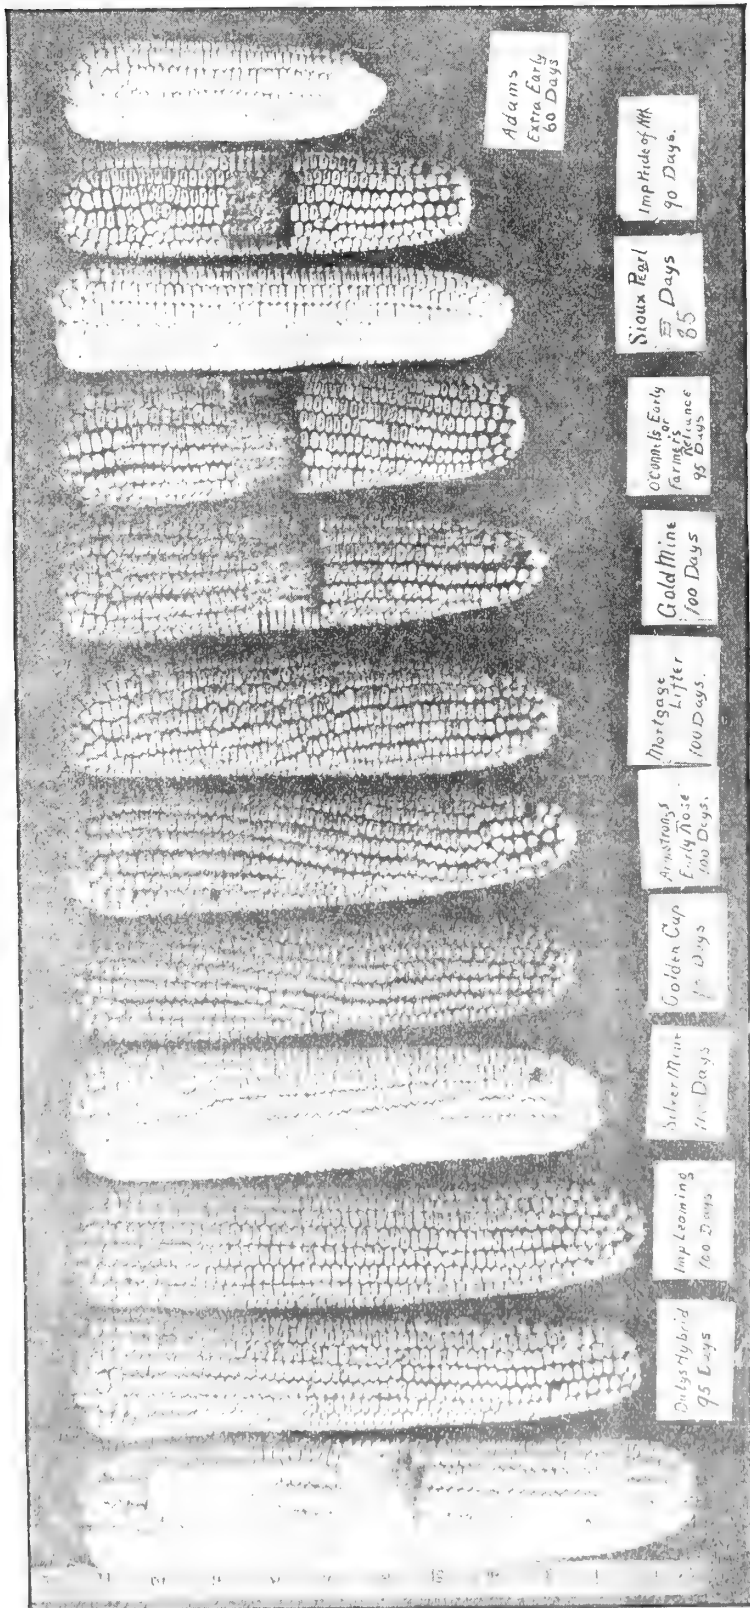 Adams
Extra Early
60 Days
Imp Pride of
90 Days.
Sioux Pearl
85 Days
O'Connils Early
or
Farmers
Reliance
95 Days
Gold Mine
100 Days
Mortgage
Lifter
100 Days.
Armstrongs
Early Rose
100 Days.
Golden Cup
Days
Silver Mine
Days
Imp Leaming
100 Days
Hybrid
95 Days